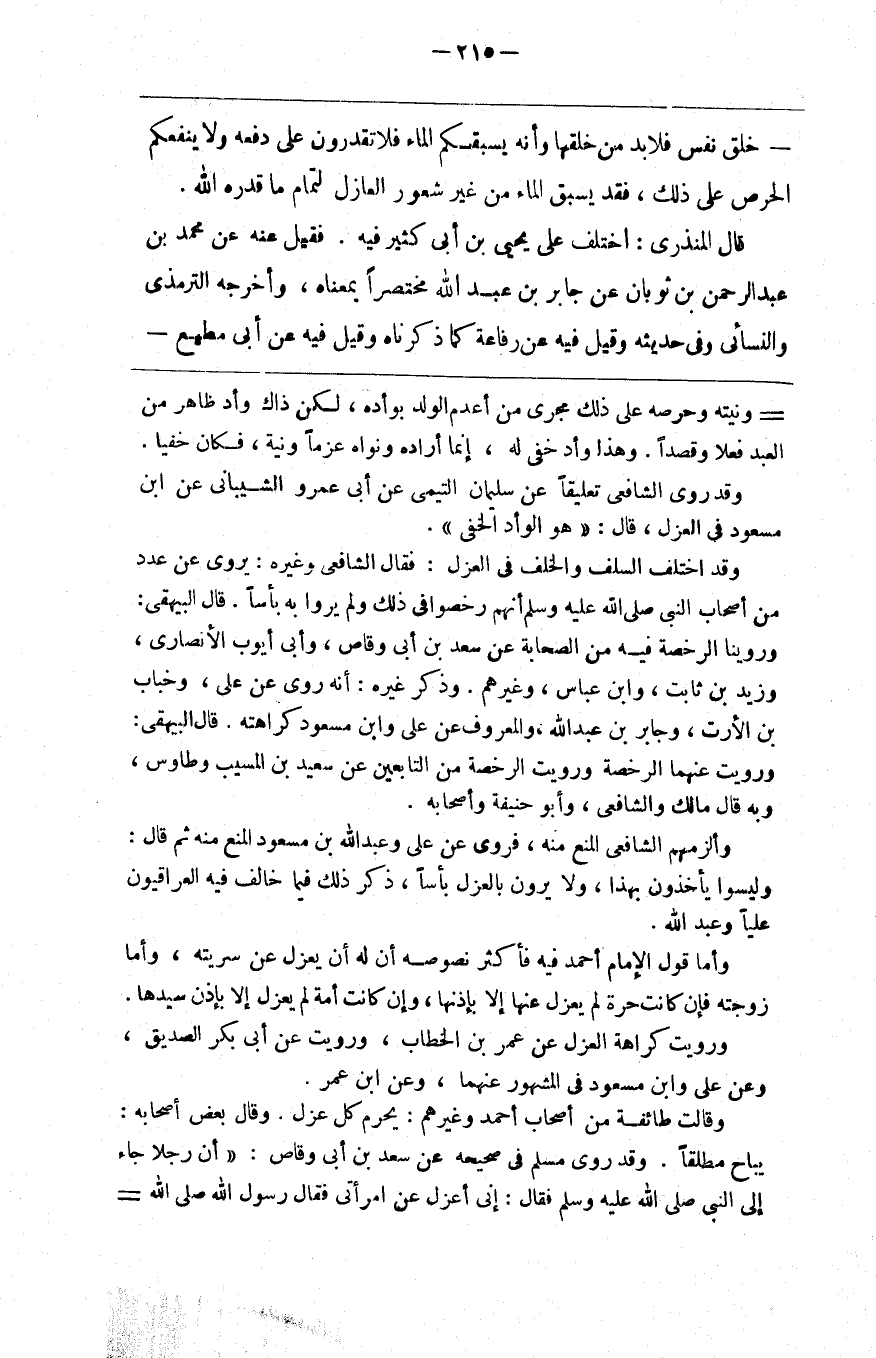 — ٢١٥ —
— خلق نفس فلابد من خلقها وأنه يسبقكم الماء فلا تقدرون على دفعه ولا ينفعكم
الحرص على ذلك ، فقد يسبق الماء من غير شعور العازل لتمام ما قدره الله .
قال المنذرى : اختلف على يحيى بن أبى كثير فيه . فقيل عنه عن محمد بن
عبدالرحمن بن ثوبان عن جابر بن عبد الله مختصراً بمعناه ، وأخرجه الترمذى
والنسائى وفى حديثه وقيل فيه عن رفاعة كما ذكرناه وقيل فيه عن أبى مطيع —
= ونيته وحرصه على ذلك مجرى من أعدم الولد بوأده ، لكن ذاك وأد ظاهر من
العبد فعلا وقصداً . وهذا وأد خفى له ، إنما أراده ونواه عزماً ونية ، فكان خفيا .
وقد روى الشافعى تعليقاً عن سليمان التيمى عن أبى عمرو الشيبانى عن ابن
مسعود فى العزل ، قال : « هو الوأد الخفى » .
وقد اختلف السلف والخلف فى العزل : فقال الشافعى وغيره : يروى عن عدد
من أصحاب النبى صلى الله عليه وسلم أنهم رخصوا فى ذلك ولم يروا به بأساً . قال البيهقى :
وروينا الرخصة فيه من الصحابة عن سعد بن أبى وقاص ، وأبى أيوب الأنصارى ،
وزيد بن ثابت ، وابن عباس ، وغيرهم . وذكر غيره : أنه روى عن على ، وخباب
بن الأرت ، وجابر بن عبدالله ، والمعروف عن على وابن مسعود كراهته . قال البيهقى :
ورويت عنهما الرخصة ورويت الرخصة من التابعين عن سعيد بن المسيب وطاوس ،
وبه قال مالك والشافعى ، وأبو حنيفة وأصحابه .
وألزمهم الشافعى المنع منه ، فروى عن على وعبدالله بن مسعود المنع منه ثم قال :
وليسوا يأخذون بهذا ، ولا يرون بالعزل بأساً ، ذكر ذلك فيما خالف فيه العراقيون
علياً وعبد الله .
وأما قول الإمام أحمد فيه فأكثر نصوصه أن له أن يعزل عن سريته ، وأما
زوجته فإن كانت حرة لم يعزل عنها إلا بإذنها ، وإن كانت أمة لم يعزل إلا بإذن سيدها .
ورويت كراهة العزل عن عمر بن الخطاب ، ورويت عن أبى بكر الصديق ،
وعن على وابن مسعود فى المشهور عنهما ، وعن ابن عمر .
وقالت طائفة من أصحاب أحمد وغيرهم : يحرم كل عزل . وقال بعض أصحابه :
يباح مطلقاً . وقد روى مسلم فى صحيحه عن سعد بن أبى وقاص : « أن رجلا جاء
إلى النبى صلى الله عليه وسلم فقال : إنى أعزل عن امرأتى فقال رسول الله صلى الله =